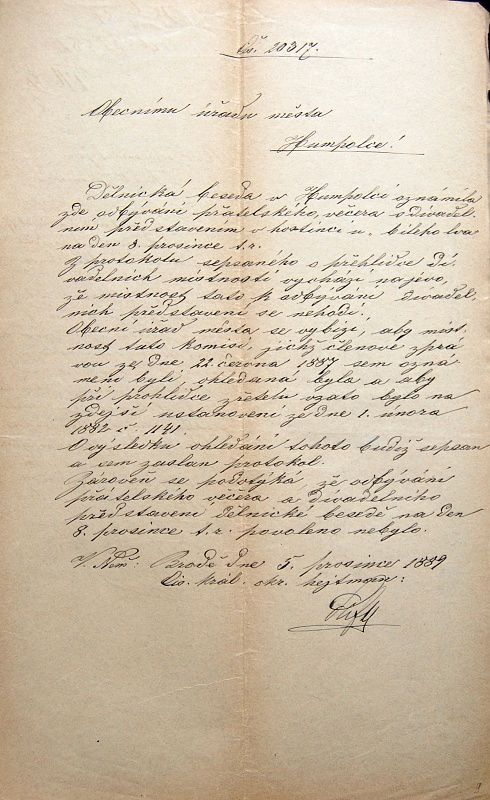 Čís. 20317.
Obecnímu úřadu města
Humpolce!
Dělnická beseda v Humpolci oznámila
zde odbývání přátelského večera s divadel-
ním představením v hostinci u bílého lva
na den 8. prosince t. r.
Z protokolu sepsaného o přehlídce di-
vadelních místností vychází na jevo,
že místnost tato k odbývání divadel-
ních představení se nehodí.
Obecní úřad města se vybízí, aby míst-
nost tato komisí, jichž členové zprá-
vou ze dne 22. června 1887 sem ozná-
meni byli ohledána byla a aby
při prohlídce zřetelu vzato bylo na
zdejší ustanovení ze dne 1. února
1882 č. 1141.
O výsledku ohledání tohoto budiž sepsán
a sem zaslán protokol.
Zároveň se podotýká že odbývání
přátelského večera a divadelního
představení Dělnické besedě na den
8. prosince t. r. povoleno nebylo.
V Něm: Brodě dne 5. prosince 1889
Cís. král. okr. hejtman: